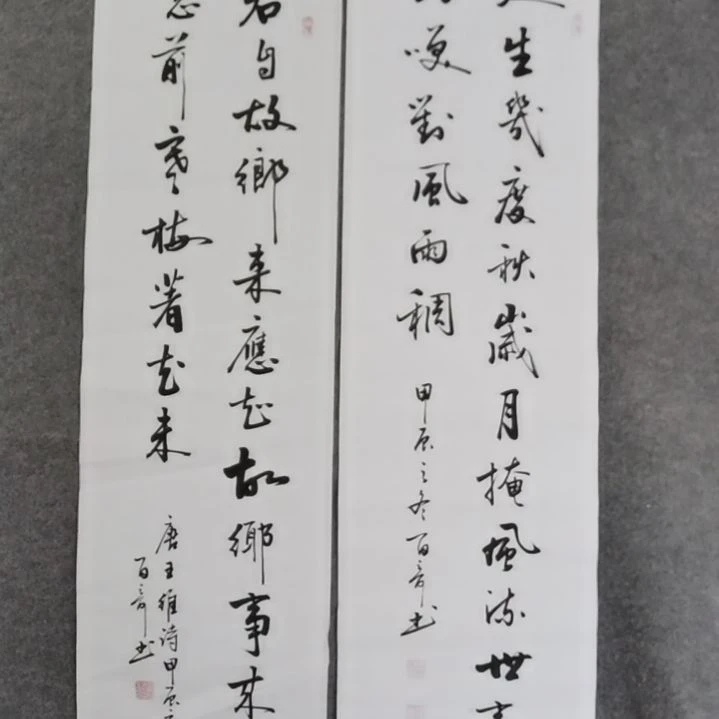 生幾度秋歲月掩風流世
咲對風雨稠
甲辰之冬百書
君自故鄉来應知故鄉事来
前寒梅著花未
唐王維詩甲辰
百書